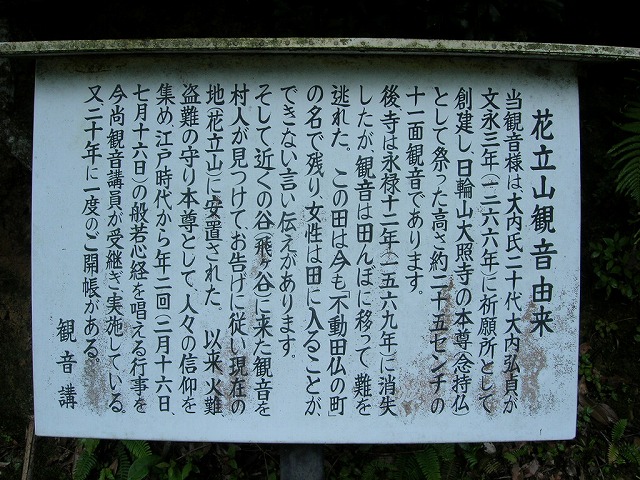 花立山観音由来
当観音様は、大内氏二十代大内弘貞が
文永三年(一二六六年)に祈願所として
創建し、日輪山大照寺の本尊(念持仏)
として祭った高さ約二十五センチの
十一面観音であります。
後、寺は永禄十二年(一五六九年)に消失
したが、観音は田んぼに移って、難を
逃れた。この田は今も「不動田仏の町」
の名で残り女性は田に入ることが
できない言い伝えがあります。
そして近くの谷(飛ヶ谷)に来た観音を
村人が見つけて、お告げに従い現在の
地(花立山)に安置された。以来、火難、
盗難の守り本尊として、人々の信仰を
集め、江戸時代から年二回(二月十六日、
七月十六日)の般若心経を唱える行事を
今尚観音講員が受継ぎ実施している。
又二十年に一度のご開帳がある。
観音講